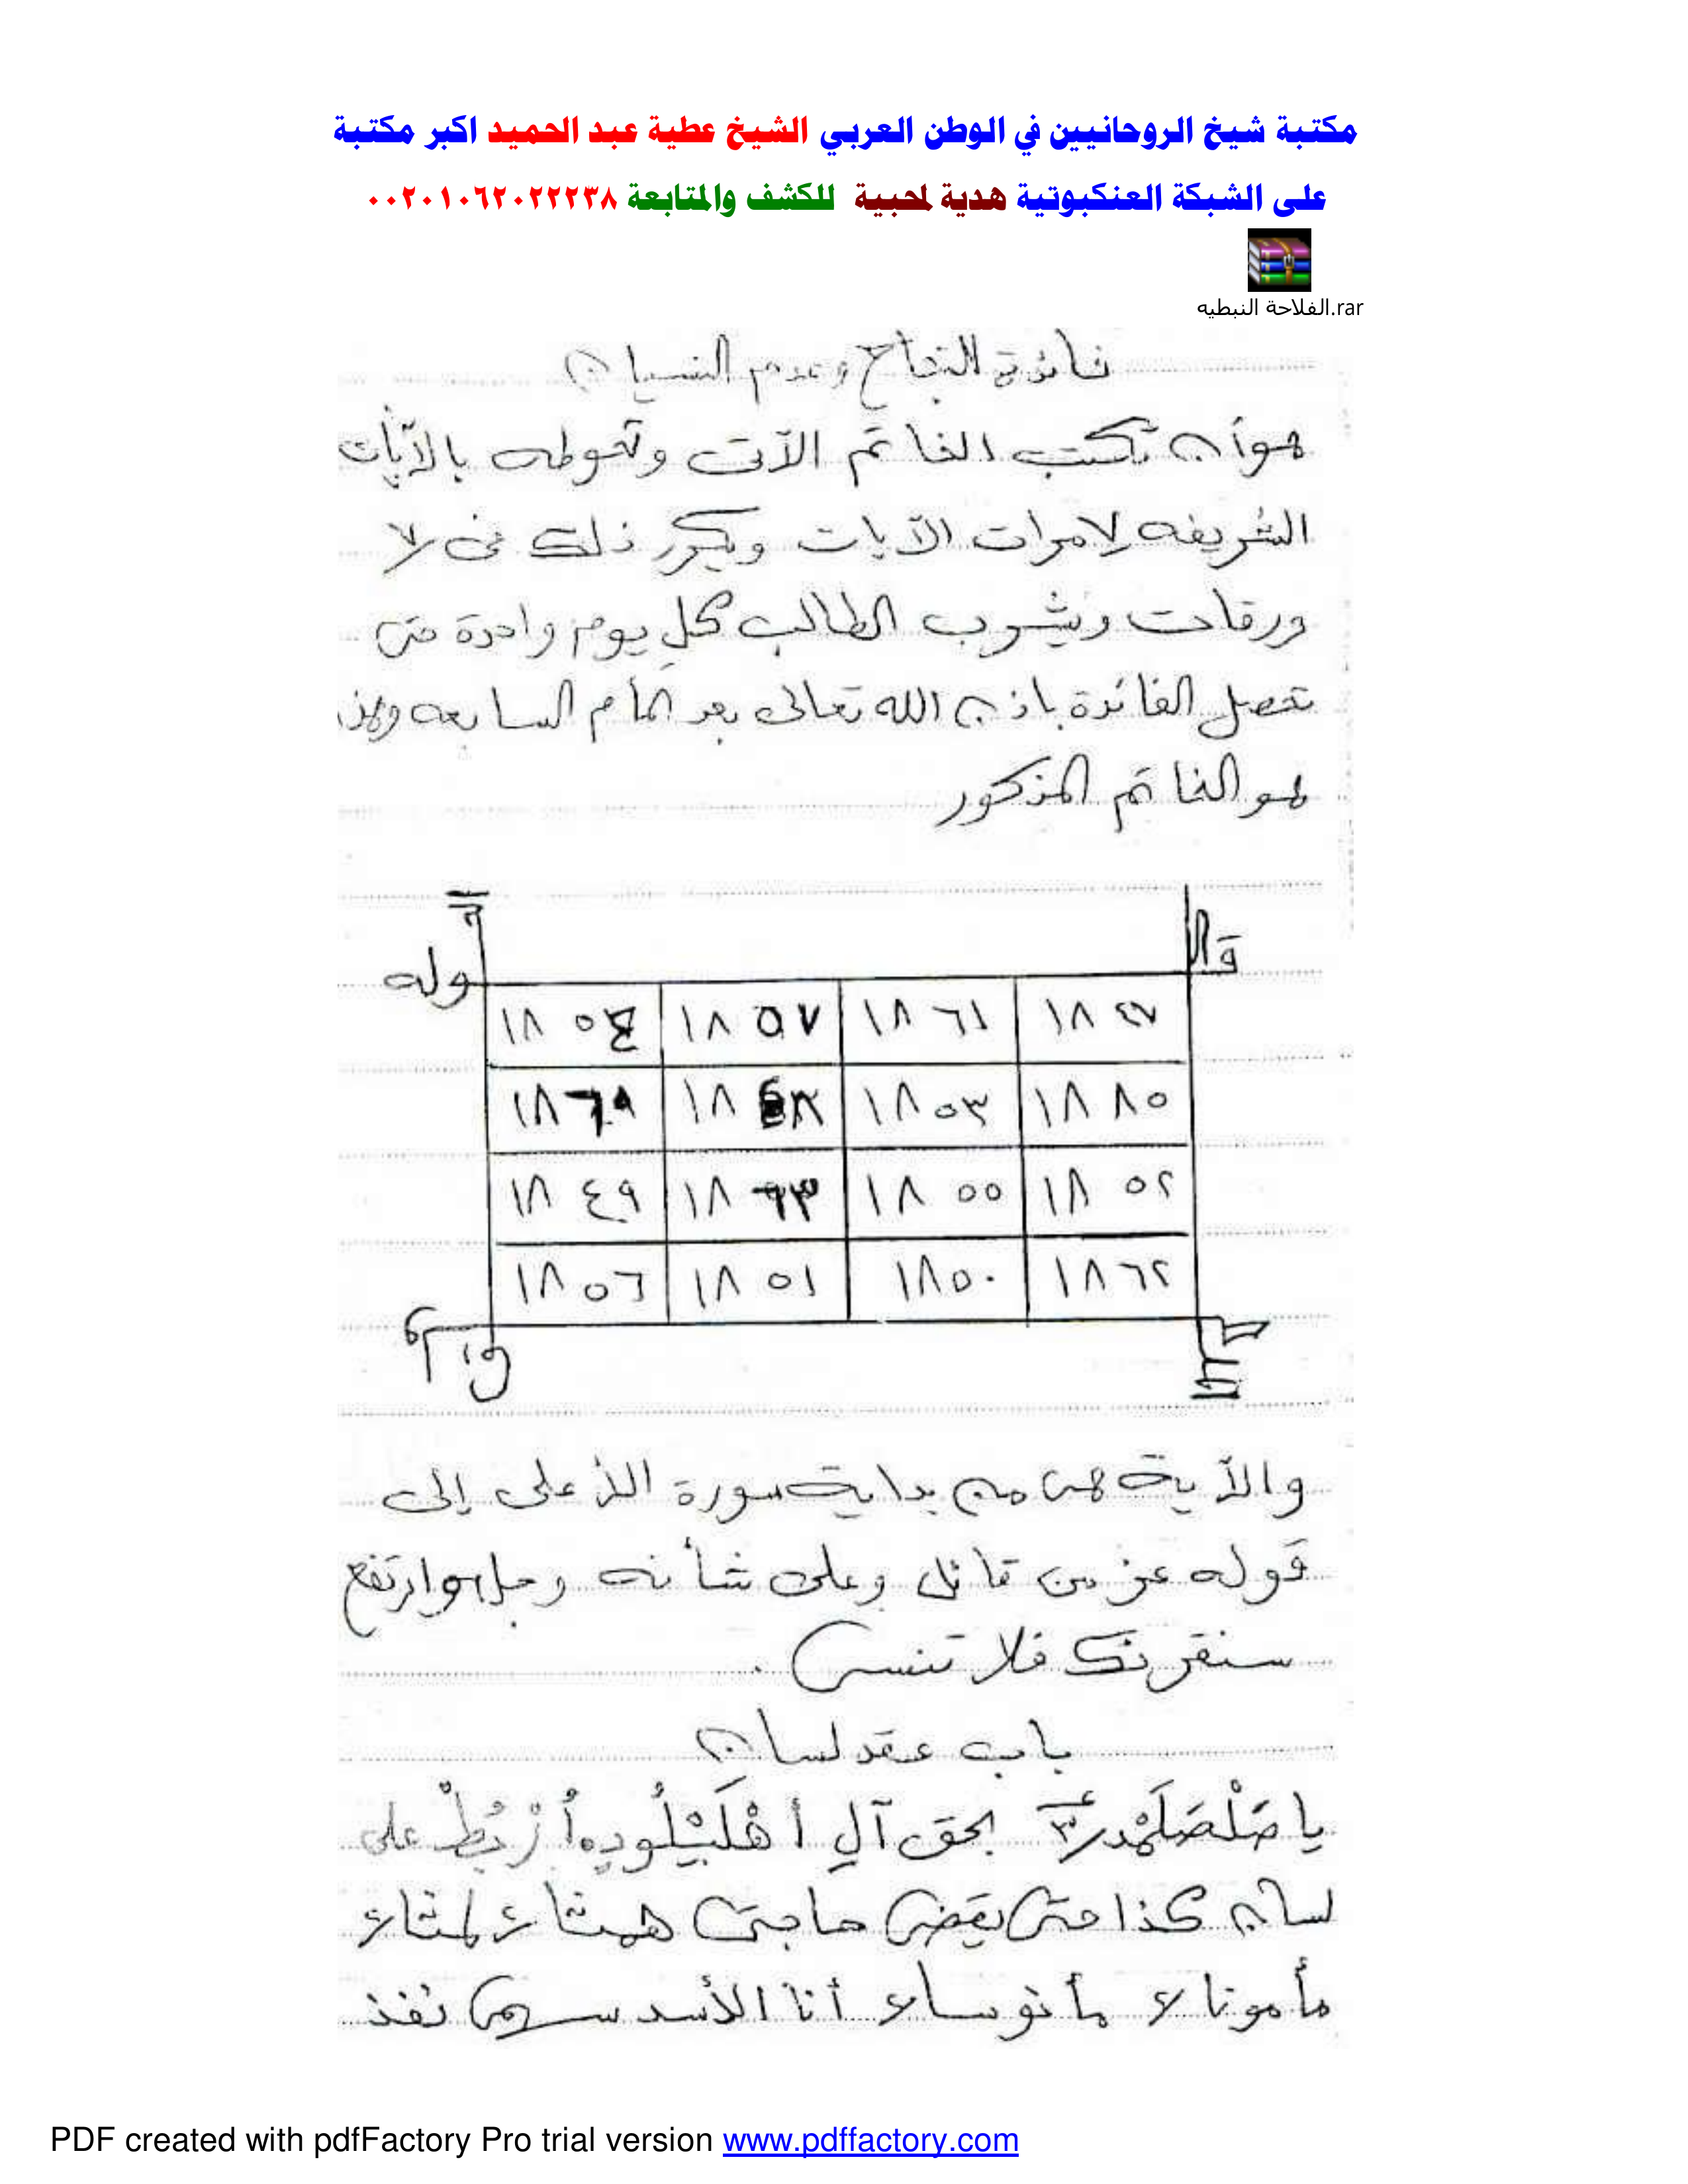 مكتبة شيخ الروحانيين في الوطن العربي الشيخ عطية عبد الحميد اكبر مكتبة
على الشبكة العنكبوتية هدية لمحبية للكشف والمتابعة ٠٠٢٠١٠٦٢٠٢٢٢٣٨
الفلاحة النبطيه.rar
فائدة النجاح وعدم النسيان
هو أن تكتب الخاتم الآتى وتحوطه بالآيات
الشريفه ٧ مرات الآيات ويكرر ذلك فى ٧
ورقات ويشرب الطالب كل يوم واحدة حتى
تحصل الفائدة باذن الله تعالى بعد اتمام السابعه وهذا
هو الخاتم المذكور
قوله الحق
١٨٥٤ ١٨٥٧ ١٨٦١
١٨٥٣ ١٨٨٥
١٨٤٩ ١٨٦٣ ١٨٥٥ ١٨٥٢
١٨٥٦ ١٨٥١ ١٨٥٠ ١٨٦٢
والآية هى من بداية سورة الأعلى إلى
قوله عز من قائل وعلى شأنه وجل وارتفع
سنقرئك فلا تنسى.
باب عقد لسان
يا بحق آل على
لسان كذا حتى يقضى حاجتى
أنا الأسد نفذ
PDF created with pdfFactory Pro trial version www.pdffactory.com